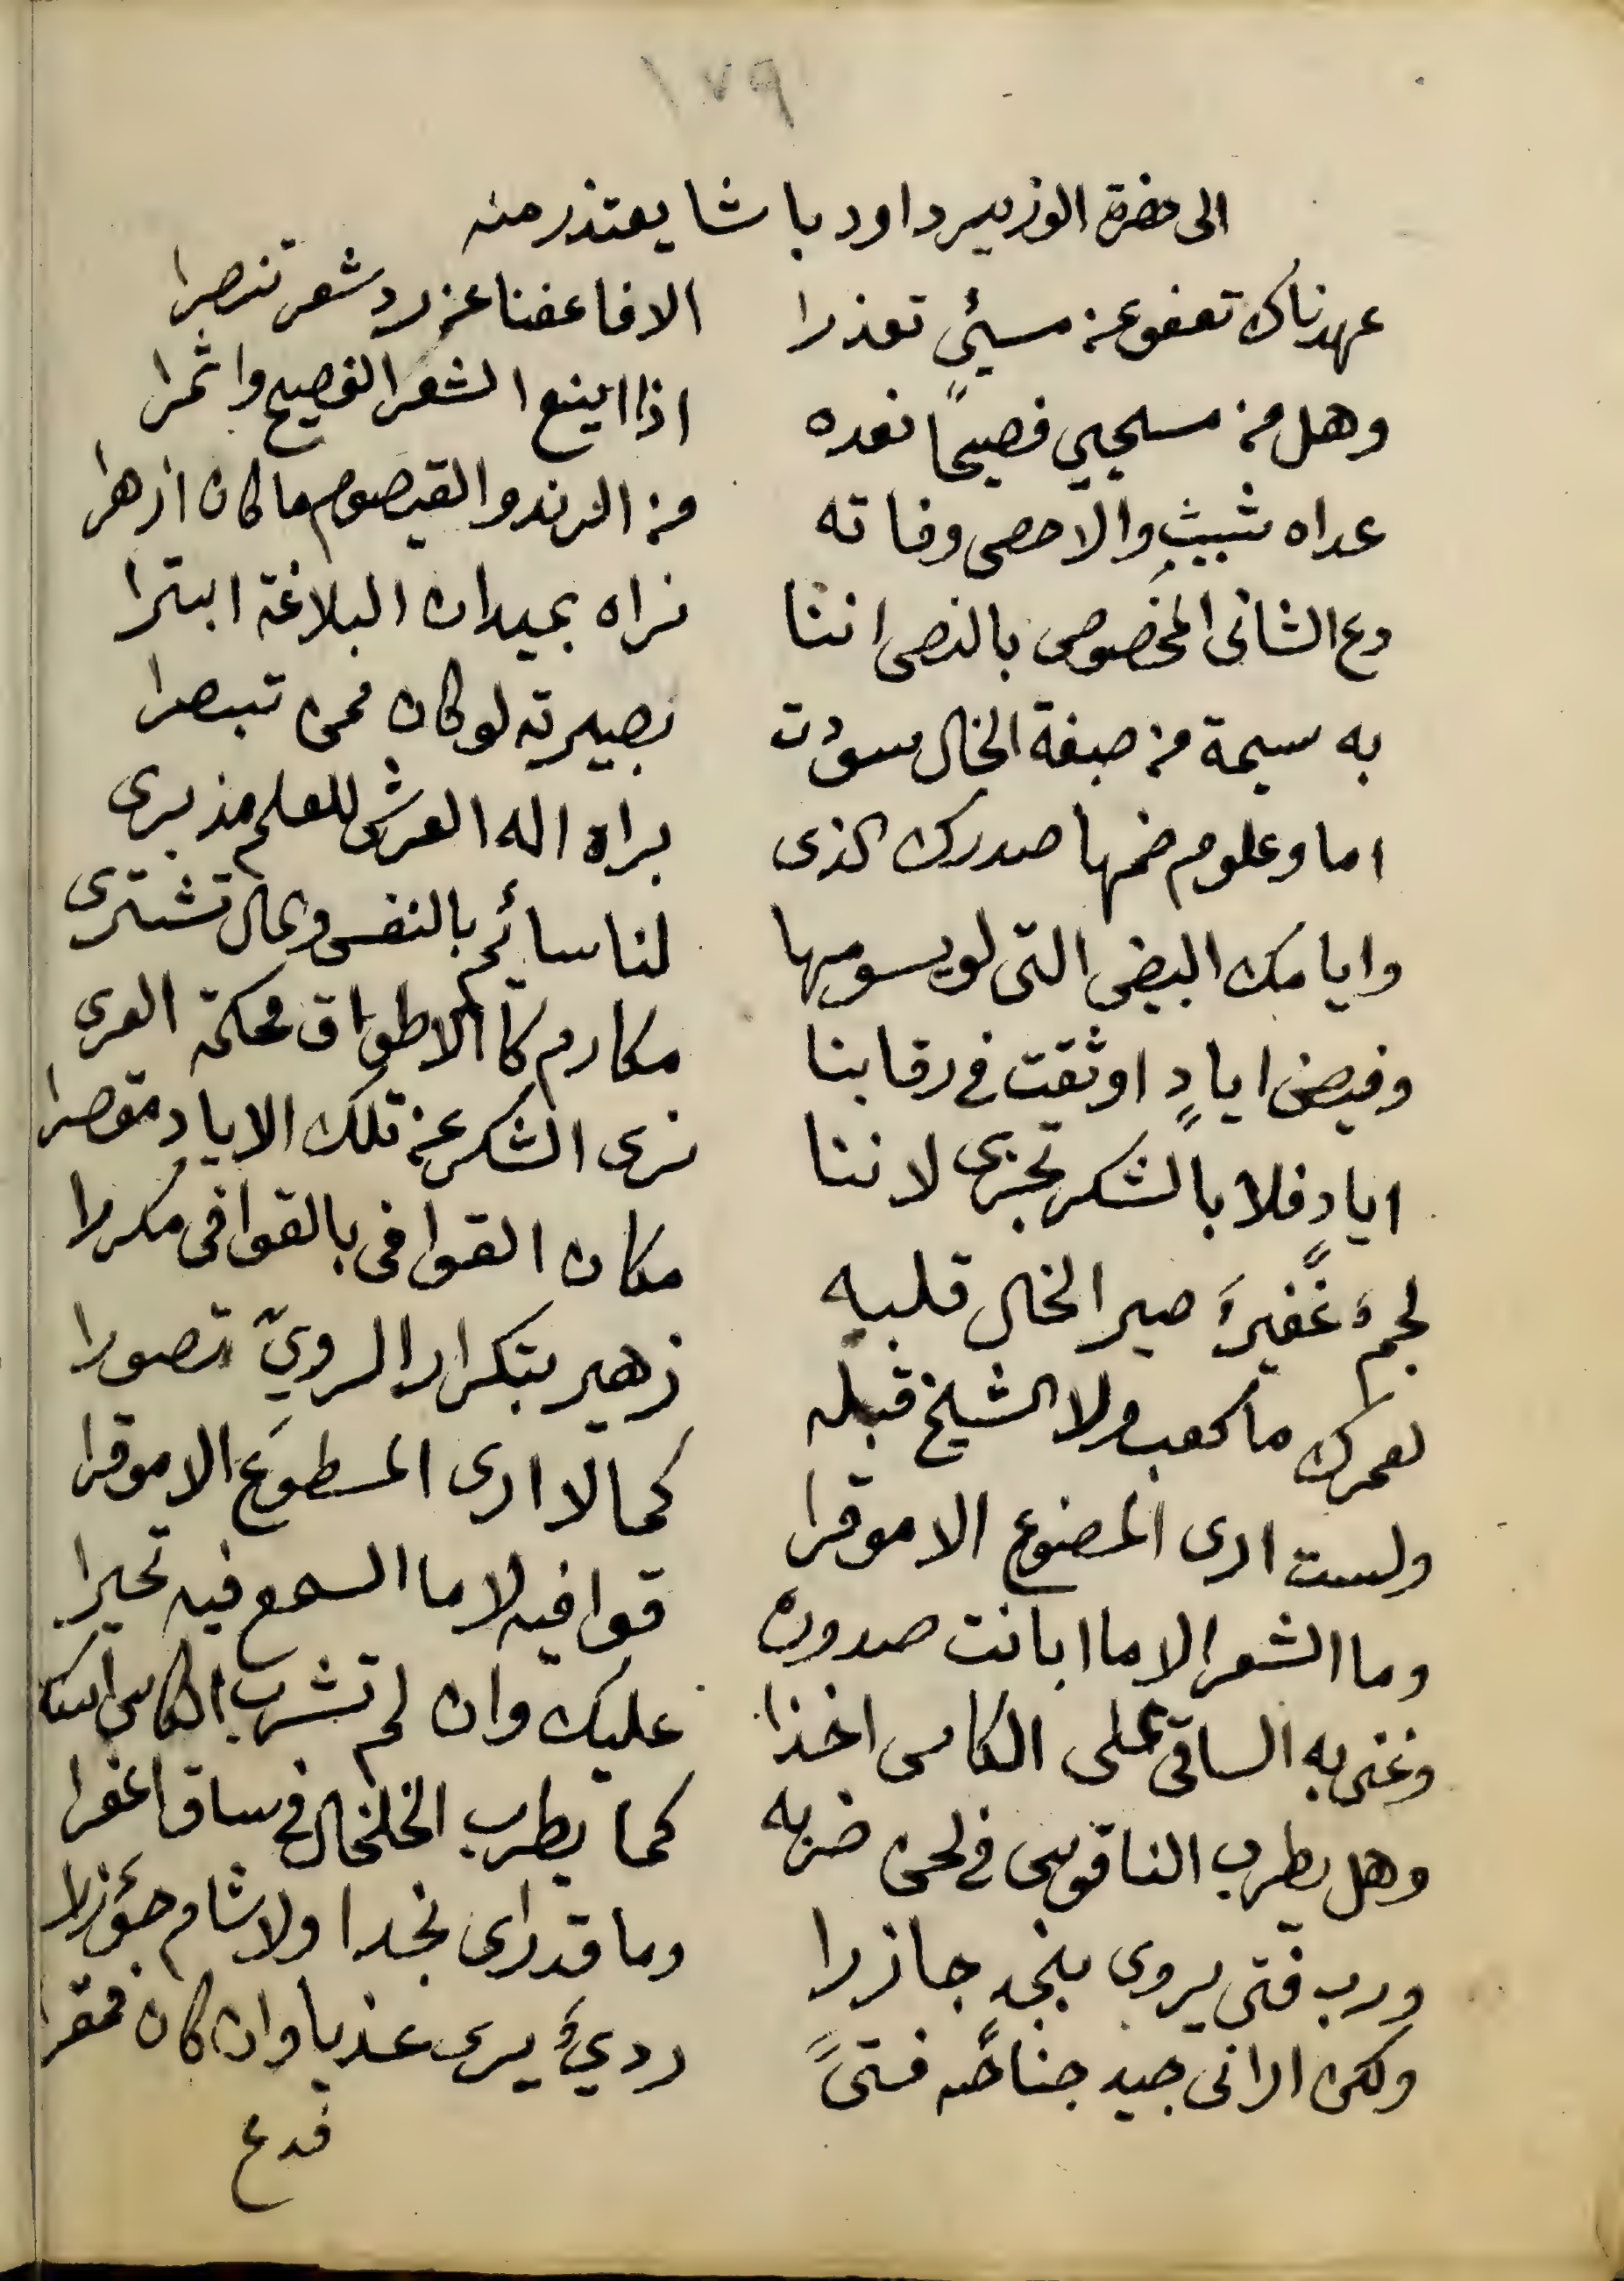 ١٧٩
الى حضرة الوزير داود باشا يعتذر منه
عهدناك تعفو عن مسئي تعذرا الا فاعفنا عن رد شعر تنصرا
وهل من مسيحيي فصيحاً نعده اذا اينع الشعر الفصيح واثمرا
عداه شبيث والاحص وفاته من الرند والقيصوم ما كان ازهرا
دع الشانى المخصوص بالنص اننا نراه بميدان البلاغة ابترا
به سيمة من صبغة الخال سودت بصيرته لو كان ممن تبصرا
اما وعلوم ضمها صدرك الذى براه اله العرش للعلم مذ برى
وايامك البيض التى لو يسومها لنا سائم بالنفس والمال تشترى
وفيض ايادٍ اوثقت فى رقابنا مكارم كا الاطواق محكمة العرى
ايادٍ فلا بالشكر تجزى لاننا نرى الشكر عن تلك الاياد مقصرا
لجم غفير صير الخال قلبه مكان القوافى بالقوافى مكررا
لعمرك ما كعب ولا الشيخ قبله زهير بتكرار الرويّ تصورا
ولست ارى المصنوع الا موقرا كما لا ارى المطوع الا موقرا
وما الشعر الا ما ابانت صدوره قوافيه لا ما السمع فيه تحيرا
وغنى به الساقى على الكاس اخذا عليك وان لم تشرب الكاس اسكرا
وهل يطرب الناقوس فى لحن ضربه كما يطرب الخلخال فى ساق اعفرا
ورب فتى يروى بنجد جاذرا وما قد راى نجدا ولا شام جؤذرا
ولكن ارانى جيد فتىً رديّ يرى عذبا وان كان ممقرا
فدع